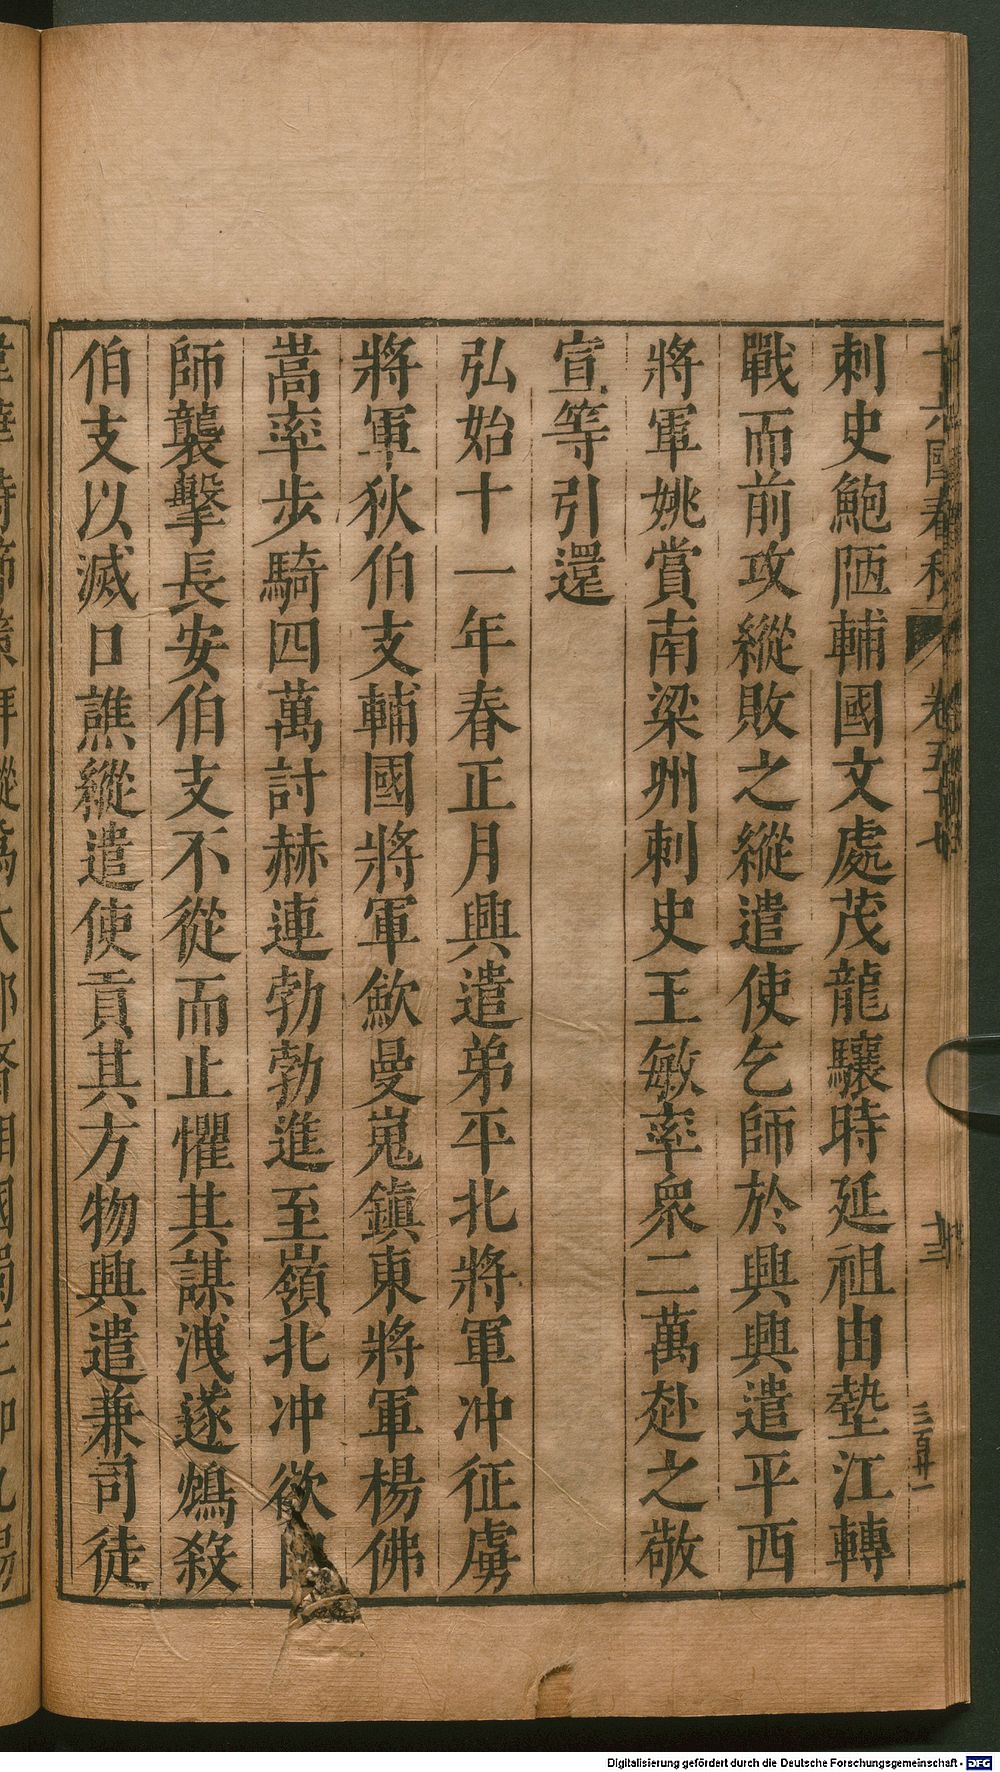 十六國春秋 卷五十七
刺史鮑陋輔國文處茂龍驤時延祖由墊江轉
戰而前攻縱敗之縱遣使乞師於興興遣平西
將軍姚賞南梁州刺史王敏率衆二萬赴之敬
宣等引還
弘始十一年春正月興遣弟平北將軍冲征虜
將軍狄伯支輔國將軍歛曼嵬鎭東將軍楊佛
嵩率步騎四萬討赫連勃勃進至嶺北冲欲
師襲擊長安伯支不從而止懼其謀洩遂鴆殺
伯支以滅口譙縱遣使貢其方物興遣兼司徒
Digitalisierung gefördert durch die Deutsche Forschungsgemeinschaft - DFG